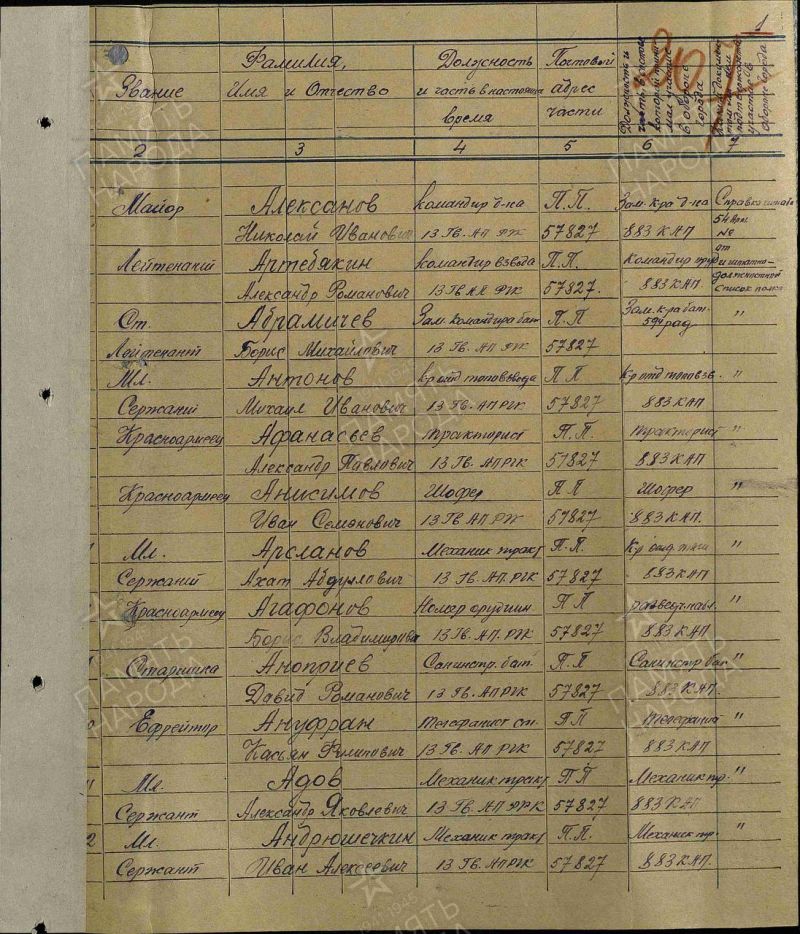 1
Звание
Фамилия,
Имя и Отчество
Должность
и часть в настоящ
время
Почтовый
адрес
части
2 3 4 5 6 7
Майор Алексанов командир д-на П.П. Зам. к-ра д-на Справка штаба
Николай Иванович 13 Гв. АП РГК 57827 883 КАП 54 Арм.
№
Лейтенант Артебякин командир взвода П.П. Командир от
Александр Романович 13 Гв АП РГК 57827. 883 КАП и штатно-
должностной
список полка
Ст. Абрамичев Зам. командира бат. П.П Зам. к-ра бат. "
Лейтенант Борис Михайлович 13 Гв. АП РГК 57827
Мл. Антонов к-р отд топовзвода П П К-р отд топовзв. "
Сержант Михаил Иванович 13 Гв. АП РГК 57827 883 КАП
Красноармеец Афанасьев тракторист П.П. тракторист "
Александр Павлович 13 Гв. АП РГК 57827 883 КАП
Красноармеец Анисимов Шофер П П Шофер "
Иван Семенович 13 ГВ АП РГК 57827 883 КАП.
Мл. Арсланов Механик тракт П.П. К-р отд тяги "
Сержант Ахат Абдулович 13 Гв. АП. РГК 57827 883 КАП
Красноармеец Агафонов Номер орудийн П П "
Борис Владимирови 13 Гв. АП. РГК 57827 883 КАП
Старшина Аноприев Санинстр. бат. П.П Санинстр бат. "
Давид Романович 13 Гв. АП РГК 57827 883 КАП.
Ефрейтор Ануфран телефанист ст. П П телефанист "
Касьян Филипович 13 Гв. АП РГК 57827 883 КАП
11 Мл. Адов Механик тракт П П Механик тр. "
Сержант Александр Яковлевич 13 Гв. АП РГК 57827 883 КАП
2 Мл. Андрюшечкин Механик тракт П.П. Механик тр. "
Сержант Иван Алексеевич 13 Гв. АП РГК 57827 883 КАП.
ПАМЯТЬ
НАРОДА